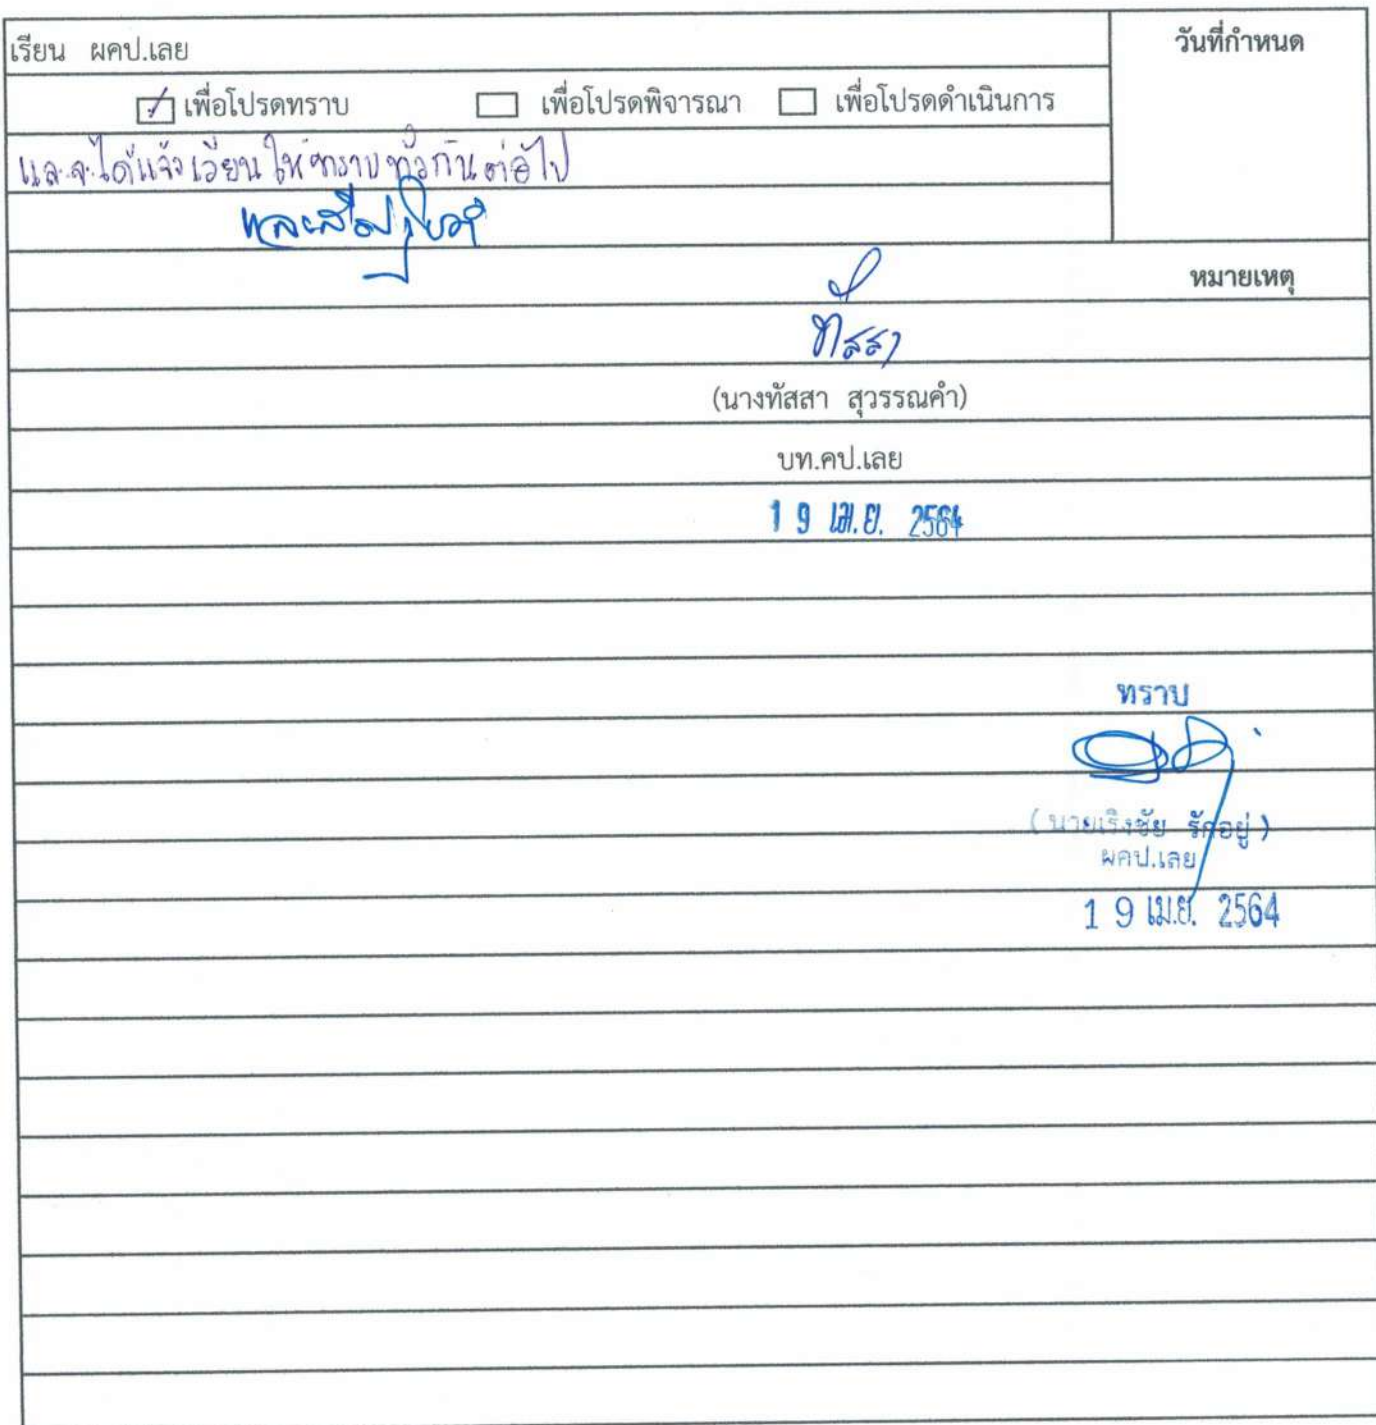 เรียน ผคป.เลย
วันที่กำหนด
เพื่อโปรดทราบ เพื่อโปรดพิจารณา เพื่อโปรดดำเนินการ
และจะได้แจ้งเวียนให้ทราบทั่วกันต่อไป
หมายเหตุ
ทัสสา
(นางทัสสา สุวรรณคำ)
บท.คป.เลย
19 เม.ย. 2564
ทราบ
(นายเริงชัย รักอยู่)
ผคป.เลย
19 เม.ย. 2564